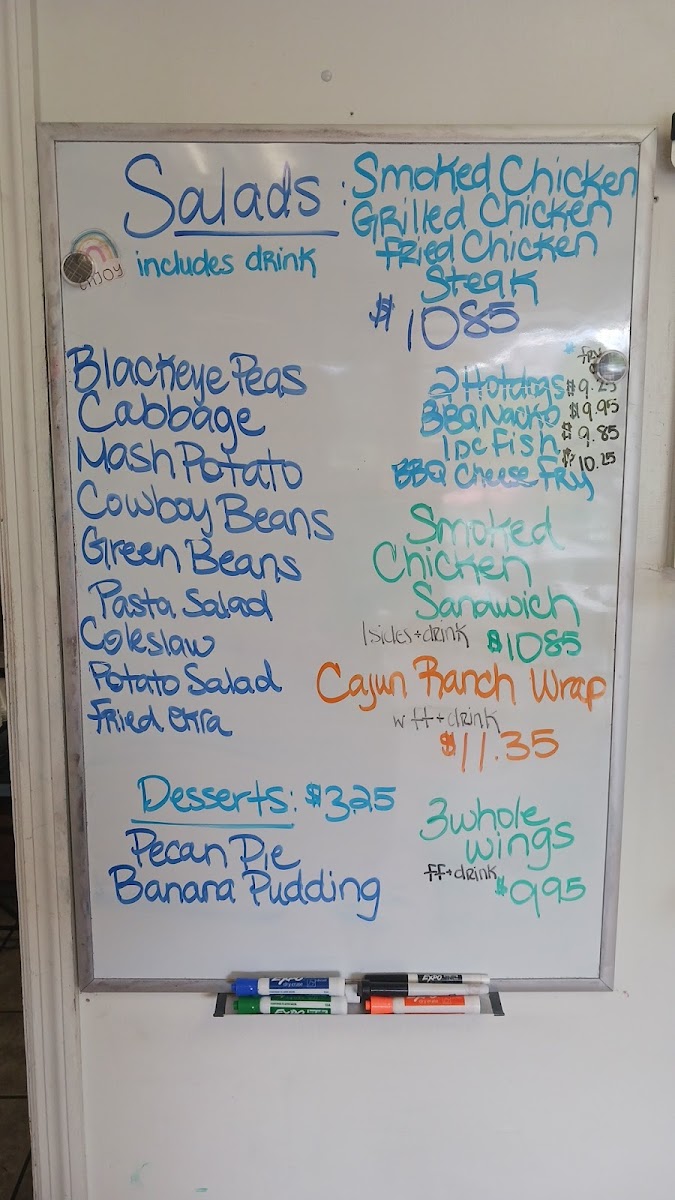 Salads:
includes drink
Smoked Chicken
Grilled Chicken
Fried Chicken
Steak
$1085
ENJOY
Blackeye Peas
Cabbage
Mash Potato
Cowboy Beans
Green Beans
Pasta Salad
Coleslaw
Potato Salad
Fried Okra
fry
2 Hotdogs $9.25
BBQ Nacho $9.95
1pc Fish $9.85
BBQ Cheese Fry $10.25
Smoked
Chicken
Sandwich
1 sides + drink $1085
Cajun Ranch Wrap
w ff + drink
$11.35
Desserts: $3.25
Pecan Pie
Banana Pudding
3 whole
wings
ff + drink $995
EXPO
dry erase
EXPO
EXPO
dry erase